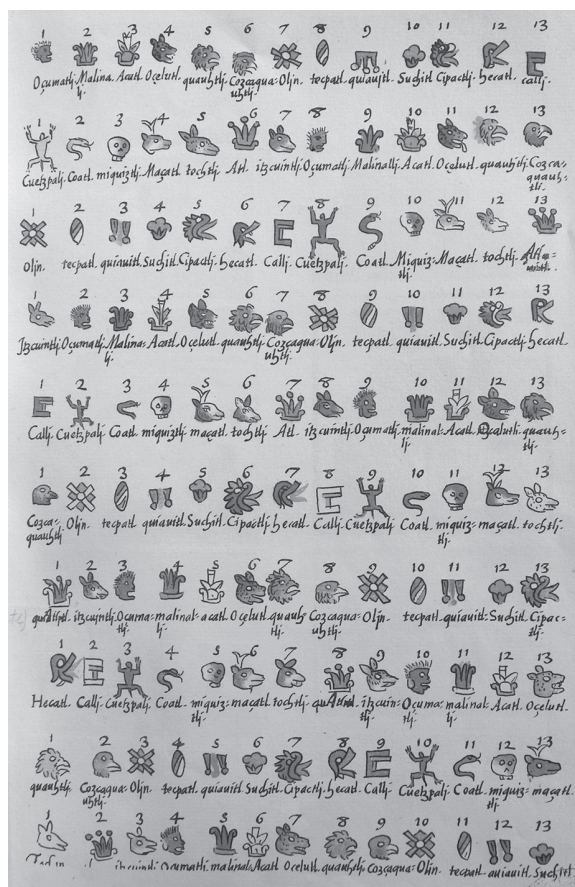 1 2 3 4 5 6 7 8 9 10 11 12 13
Oçumatlj. Malina= Acatl. Oçelutl. quauhtlj. Cozcaqua= Oljn. tecpatl. quiauitl. Suchitl. Cipactlj. hecatl. callj.
lj. uhtlj.
1 2 3 4 5 6 7 8 9 10 11 12 13
Cuetzpalj. Coatl. miquiztlj. Maçatl. tochtlj. Atl. itzcuintlj. Oçumatlj. Malinallj. Acatl. Oçelutl. quauhtlj. Cozca=
quauh=
tlj.
1 2 3 4 5 6 7 8 9 10 11 12 13
Oljn. tecpatl. quiauitl. Suchitl. Cipactlj. hecatl. Callj. Cuetzpalj. Coatl. Miquiz= Maçatl. tochtlj.
tlj.
1 2 3 4 5 6 7 8 9 10 11 12 13
Jtzcuintlj. Oçumatlj. Malina= Acatl. Oçelutl. quauhtlj. Cozcaqua= Oljn. tecpatl. quiauitl. Suchitl. Cipactlj. hecatl.
lj. uhtlj.
1 2 3 4 5 6 7 8 9 10 11 12 13
Callj. Cuetzpalj. Coatl. miquiztlj. maçatl. tochtlj. Atl. itzcuintlj. Oçumatlj. malinal= Acatl. Oçelutl. quauh=
lj. tlj.
1 2 3 4 5 6 7 8 9 10 11 12 13
Cozca= Oljn. tecpatl. quiauitl. Suchitl. Cipactlj. hecatl. Callj. Cuetzpalj. Coatl. miquiz= maçatl. tochtlj.
quauhtlj. tlj.
1 2 3 4 5 6 7 8 9 10 11 12 13
itzcuintlj. Oçuma= malinal= acatl. Oçelutl. quauh= Cozcaqua= Oljn. tecpatl. quiauitl. Suchitl. Cipac=
tlj. lj. tlj. uhtlj. tlj.
1 2 3 4 5 6 7 8 9 10 11 12 13
Hecatl. Callj. Cuetzpalj. Coatl. miquiz= maçatl. tochtlj. itzcuin= Oçuma= malinal= Acatl. Oçelutl.
tlj. tlj. tlj. lj.
1 2 3 4 5 6 7 8 9 10 11 12 13
quauhtlj. Cozcaqua= Oljn. tecpatl. quiauitl. Suchitl. Cipactlj. hecatl. Callj. Cuetzpalj. Coatl. miquiz= maçatl.
uhtlj. tlj.
1 2 3 4 5 6 7 8 9 10 11 12 13
Oçumatlj. malinal= Acatl. Oçelutl. quauhtlj. Cozcaqua= Oljn. tecpatl. quiauitl. Suchitl